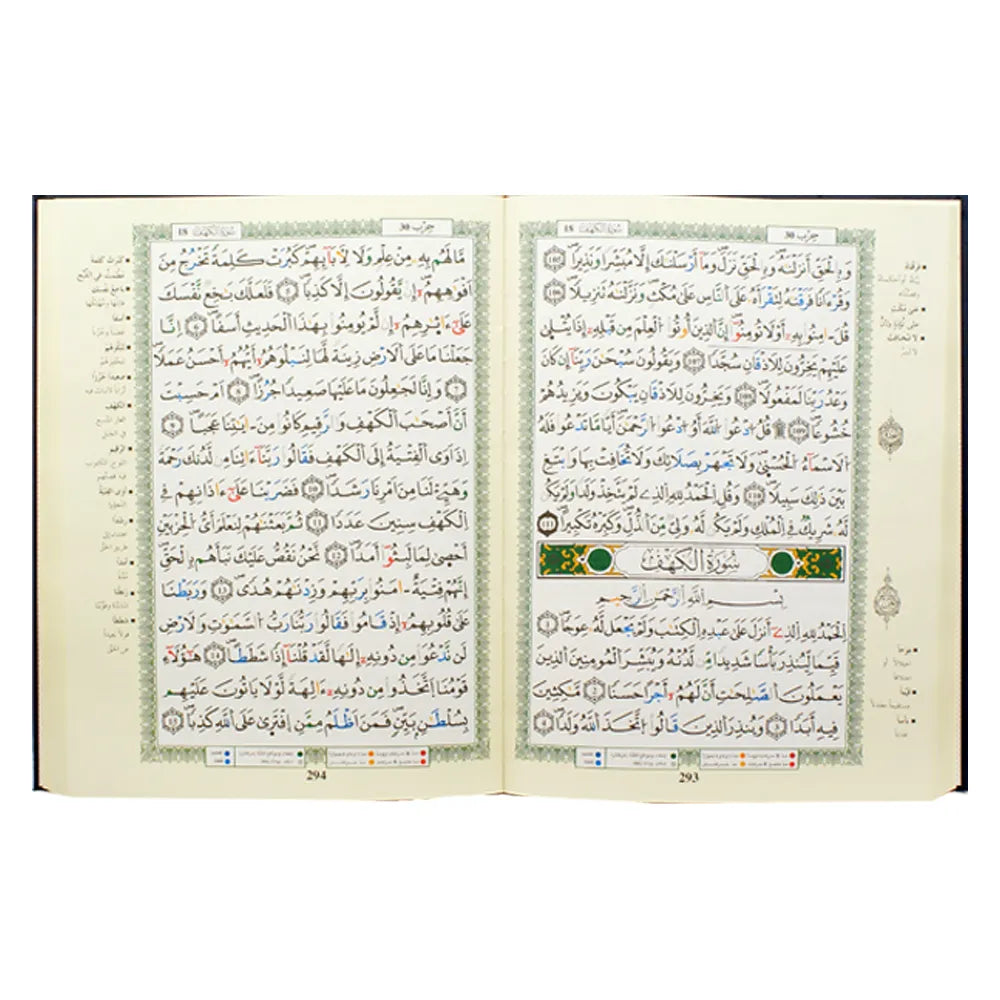 حِزْب 30
سُورَةُ الكَهْفِ 18
وَبِالْحَقِّ أَنزَلْنَٰهُ وَبِالْحَقِّ نَزَلَ وَمَآ أَرْسَلْنَٰكَ إِلَّا مُبَشِّرًا وَنَذِيرًا 105
وَقُرْءَانًا فَرَقْنَٰهُ لِتَقْرَأَهُۥ عَلَى النَّاسِ عَلَىٰ مُكْثٍ وَنَزَّلْنَٰهُ تَنزِيلًا 106
قُلَ اٰمِنُوا بِهِۦٓ أَوْ لَا تُومِنُوٓا إِنَّ الذِينَ أُوتُوا الْعِلْمَ مِن قَبْلِهِۦٓ إِذَا يُتْلَىٰ
عَلَيْهِمْ يَخِرُّونَ لِلَاذْقَانِ سُجَّدًا 107 وَيَقُولُونَ سُبْحَٰنَ رَبِّنَآ إِن كَانَ
وَعْدُ رَبِّنَا لَمَفْعُولًا 108 وَيَخِرُّونَ لِلَاذْقَانِ يَبْكُونَ وَيَزِيدُهُمْ
خُشُوعًا 109 قُلُ ادْعُوا اللَّهَ أَوُ ادْعُوا الرَّحْمَٰنَ أَيًّا مَّا تَدْعُوا فَلَهُ
الَاسْمَآءُ الْحُسْنَىٰ وَلَا تَجْهَرْ بِصَلَاتِكَ وَلَا تُخَافِتْ بِهَا وَابْتَغِ
بَيْنَ ذَٰلِكَ سَبِيلًا 110 وَقُلِ الْحَمْدُ لِلهِ الذِے لَمْ يَتَّخِذْ وَلَدًا وَلَمْ يَكُن
لَّهُۥ شَرِيكٌ فِے الْمُلْكِ وَلَمْ يَكُن لَّهُۥ وَلِيٌّ مِّنَ الذُّلِّ وَكَبِّرْهُ تَكْبِيرًا 111
سُورَةُ الْكَهْفِ
بِسْمِ اللَّهِ الرَّحْمَٰنِ الرَّحِيمِ
الْحَمْدُ لِلهِ الذِےٓ أَنزَلَ عَلَىٰ عَبْدِهِ الْكِتَٰبَ وَلَمْ يَجْعَل لَّهُۥ عِوَجًا 1
قَيِّمًا لِّيُنذِرَ بَأْسًا شَدِيدًا مِّن لَّدُنْهُ وَيُبَشِّرَ الْمُومِنِينَ الذِينَ
يَعْمَلُونَ الصَّٰلِحَٰتِ أَنَّ لَهُمُۥٓ أَجْرًا حَسَنًا 2 مَّٰكِثِينَ
فِيهِ أَبَدًا 3 وَيُنذِرَ الذِينَ قَالُوا اتَّخَذَ اللَّهُ وَلَدًا 4
293
حِزْب 30
سُورَةُ الكَهْفِ 18
مَّا لَهُم بِهِۦ مِنْ عِلْمٍ وَلَا لِأٓبَآئِهِمْ كَبُرَتْ كَلِمَةً تَخْرُجُ مِنَ
اَفْوَٰهِهِمُۥٓ إِن يَقُولُونَ إِلَّا كَذِبًا 5 فَلَعَلَّكَ بَٰخِعٌ نَّفْسَكَ
عَلَىٰٓ ءَاثَٰرِهِمُۥٓ إِن لَّمْ يُومِنُوا بِهَٰذَا الْحَدِيثِ أَسَفًا 6 اِنَّا
جَعَلْنَا مَا عَلَى الَارْضِ زِينَةً لَّهَا لِنَبْلُوَهُمُۥٓ أَيُّهُمُۥٓ أَحْسَنُ عَمَلًا
7 وَإِنَّا لَجَٰعِلُونَ مَا عَلَيْهَا صَعِيدًا جُرُزًا 8 اَمْ حَسِبْتَ
أَنَّ أَصْحَٰبَ الْكَهْفِ وَالرَّقِيمِ كَانُوا مِنَ اٰيَٰتِنَا عَجَبًا 9
اِذَ اَوَى الْفِتْيَةُ إِلَى الْكَهْفِ فَقَالُوا رَبَّنَآ ءَاتِنَا مِن لَّدُنكَ رَحْمَةً
وَهَيِّئْ لَنَا مِنَ اَمْرِنَا رَشَدًا 10 فَضَرَبْنَا عَلَىٰٓ ءَاذَانِهِمْ فِے
الْكَهْفِ سِنِينَ عَدَدًا 11 ثُمَّ بَعَثْنَٰهُمْ لِنَعْلَمَ أَيُّ الْحِزْبَيْنِ
أَحْصَىٰ لِمَا لَبِثُوٓا أَمَدًا 12 نَّحْنُ نَقُصُّ عَلَيْكَ نَبَأَهُم بِالْحَقِّ
إِنَّهُمْ فِتْيَةٌ اٰمَنُوا بِرَبِّهِمْ وَزِدْنَٰهُمْ هُدًى 13 وَرَبَطْنَا
عَلَىٰ قُلُوبِهِمُۥٓ إِذْ قَامُوا فَقَالُوا رَبُّنَا رَبُّ السَّمَٰوَٰتِ وَالَارْضِ
لَن نَّدْعُوَا مِن دُونِهِۦٓ إِلَٰهًا لَّقَدْ قُلْنَآ إِذًا شَطَطًا 14 هَٰٓؤُلَآءِ
قَوْمُنَا اَتَّخَذُوا مِن دُونِهِۦٓ ءَالِهَةً لَّوْلَا يَاتُونَ عَلَيْهِم
بِسُلْطَٰنٍ بَيِّنٍ فَمَنَ اَظْلَمُ مِمَّنِ افْتَرَىٰ عَلَى اللَّهِ كَذِبًا 15
294